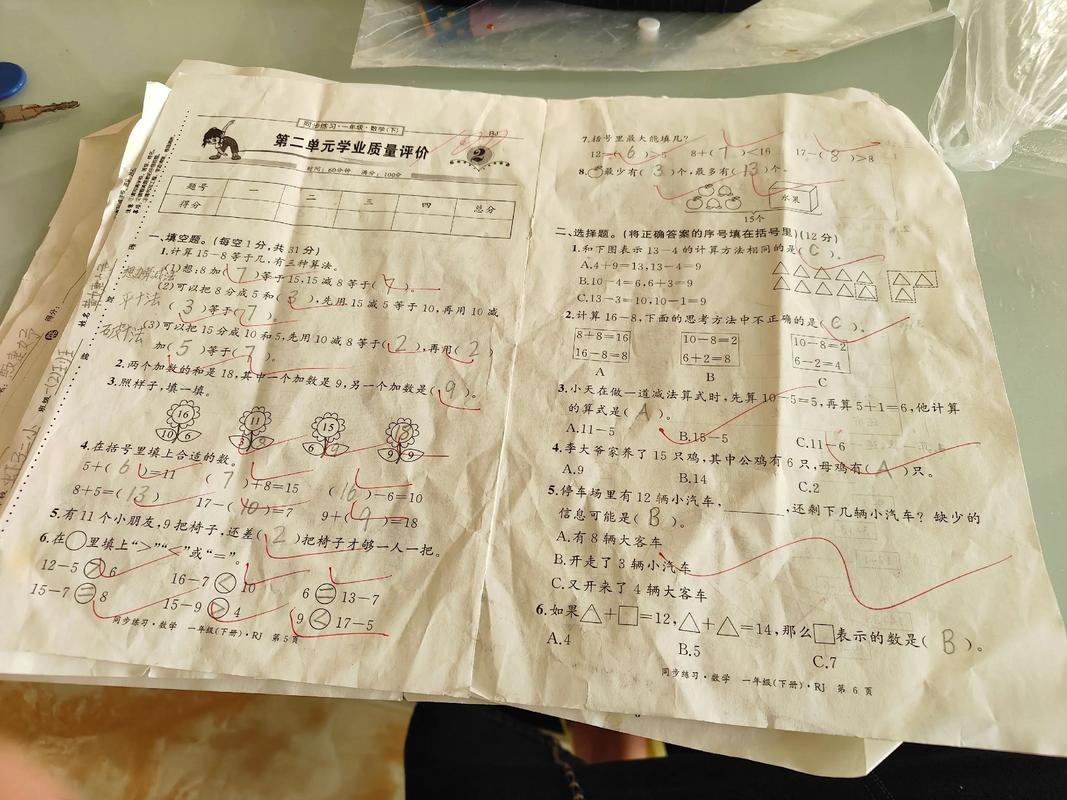 同步练习·一年级·数学(下)
RJ
第二单元学业质量评价
2
时间:60分钟 满分:100分
题号 一 二 三 四 总分
得分
一、填空题。(每空1分,共31分)
1.计算15-8等于几,有三种算法。
(1)想:8加(7)等于15,15减8等于(7)。
(2)可以把8分成5和(3),先用15减5等于10,再用10减
(3)等于(7)。
(3)可以把15分成10和5,先用10减8等于(2),再用(2)
加(5)等于(7)。
2.两个加数的和是18,其中一个加数是9,另一个加数是(9)。
3.照样子,填一填。
16 11 15
10 6 3 6 9 9
4.在括号里填上合适的数。
5+(6)=11 (7)+8=15 (16)-6=10
8+5=(13) 17-(10)=7 9+(9)=18
5.有11个小朋友,9把椅子,还差(2)把椅子才够一人一把。
6.在○里填上“>”“<”或“=”。
12-5>6 16-7<10 6=13-7
15-7=8 15-9>4 9<17-5
同步练习·数学 一年级(下册)·RJ 第5页
7.括号里最大能填几?
12-(6)>5 8+(7)<16 17-(8)>8
8.最少有(3)个,最多有(13)个。
水果
15个
二、选择题。(将正确答案的序号填在括号里)(12分)
1.和下图表示13-4的计算方法相同的是(C)。
A.4+9=13,13-4=9
B.10-4=6,6+3=9
C.13-3=10,10-1=9
2.计算16-8,下面的思考方法中不正确的是(C)。
8+8=16 10-8=2 10-8=2
16-8=8 6+2=8 6-2=4
A B C
3.小天在做一道减法算式时,先算10-5=5,再算5+1=6,他计算
的算式是(A)。
A.11-5 B.15-5 C.11-6
4.李大爷家养了15只鸡,其中公鸡有6只,母鸡有(A)只。
A.9 B.14 C.2
5.停车场里有12辆小汽车,________,还剩下几辆小汽车?缺少的
信息可能是(B)。
A.有8辆大客车
B.开走了3辆小汽车
C.又开来了4辆大客车
6.如果△+□=12,△+△=14,那么□表示的数是(B)。
A.4 B.5 C.7
同步练习·数学 一年级(下册)·RJ 第6页